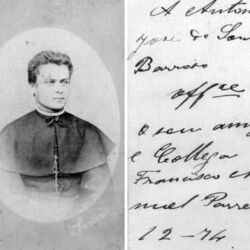 A Anton
Jose de Sou
Barroso
offre
o seu ami
e Collega
Francisco
muel Parre
12-74